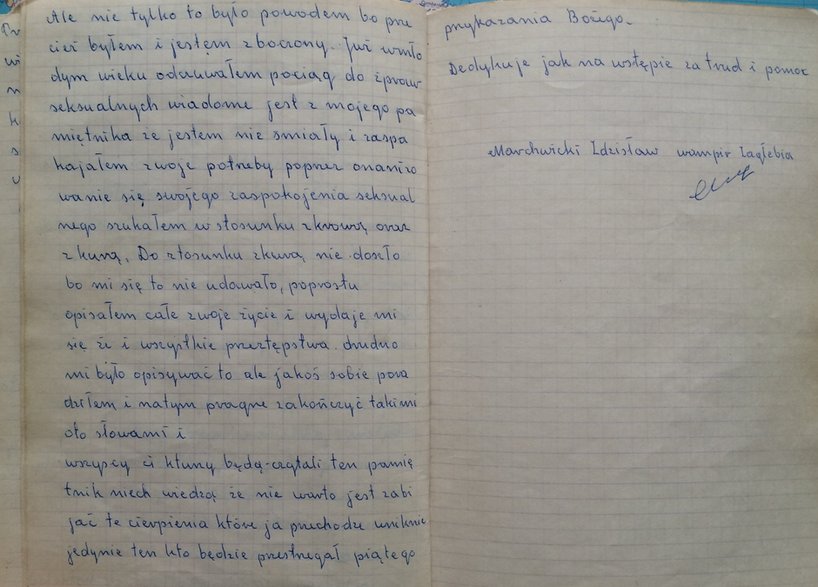 Ale nie tylko to było powodem bo prze
cież byłem i jestem zboczony. Już wmło
dym wieku odczuwałem pociąg do spraw
seksualnych wiadome jest z mojego pa
miętnika że jestem nie smiały i zaspa
kajałem swoje potrzeby poprzez onanizo
wanie się swojego zaspokojenia seksual
nego szukałem w stosunku zkrową oraz
zkurą. Do stosunku zkurą nie doszło
bo mi się to nie udawało, poprostu
opisałem całe swoje życie i wydaje mi
się że i wszystkie przestępstwa. trudno
mi było opisywać to ale jakoś sobie pora
dziłem i natym pragnę zakończyć takimi
oto słowami i
wszyscy ci którzy będą czytali ten pamię
tnik niech wiedzą że nie warto jest zabi
jać te cierpienia które ja przechodzę uniknie
jedynie ten kto będzie przestrzegał piątego
przykazania Bożego.
Dedykuje jak na wstępie za trud i pomoc
Marchwicki Zdzisław wampir zagłębia